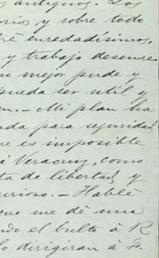 antiguos. Los
orios y sobre todo
enredadísimos,
y trabajo desense
mejor pude y
pueda ser util y
Mi plan
ada para seguridad
es imposible
á Veracruz, como
ta de libertad y
urioso. – Hablé
que me dé una
ndo el bulto á R
lo dirigiran á F.